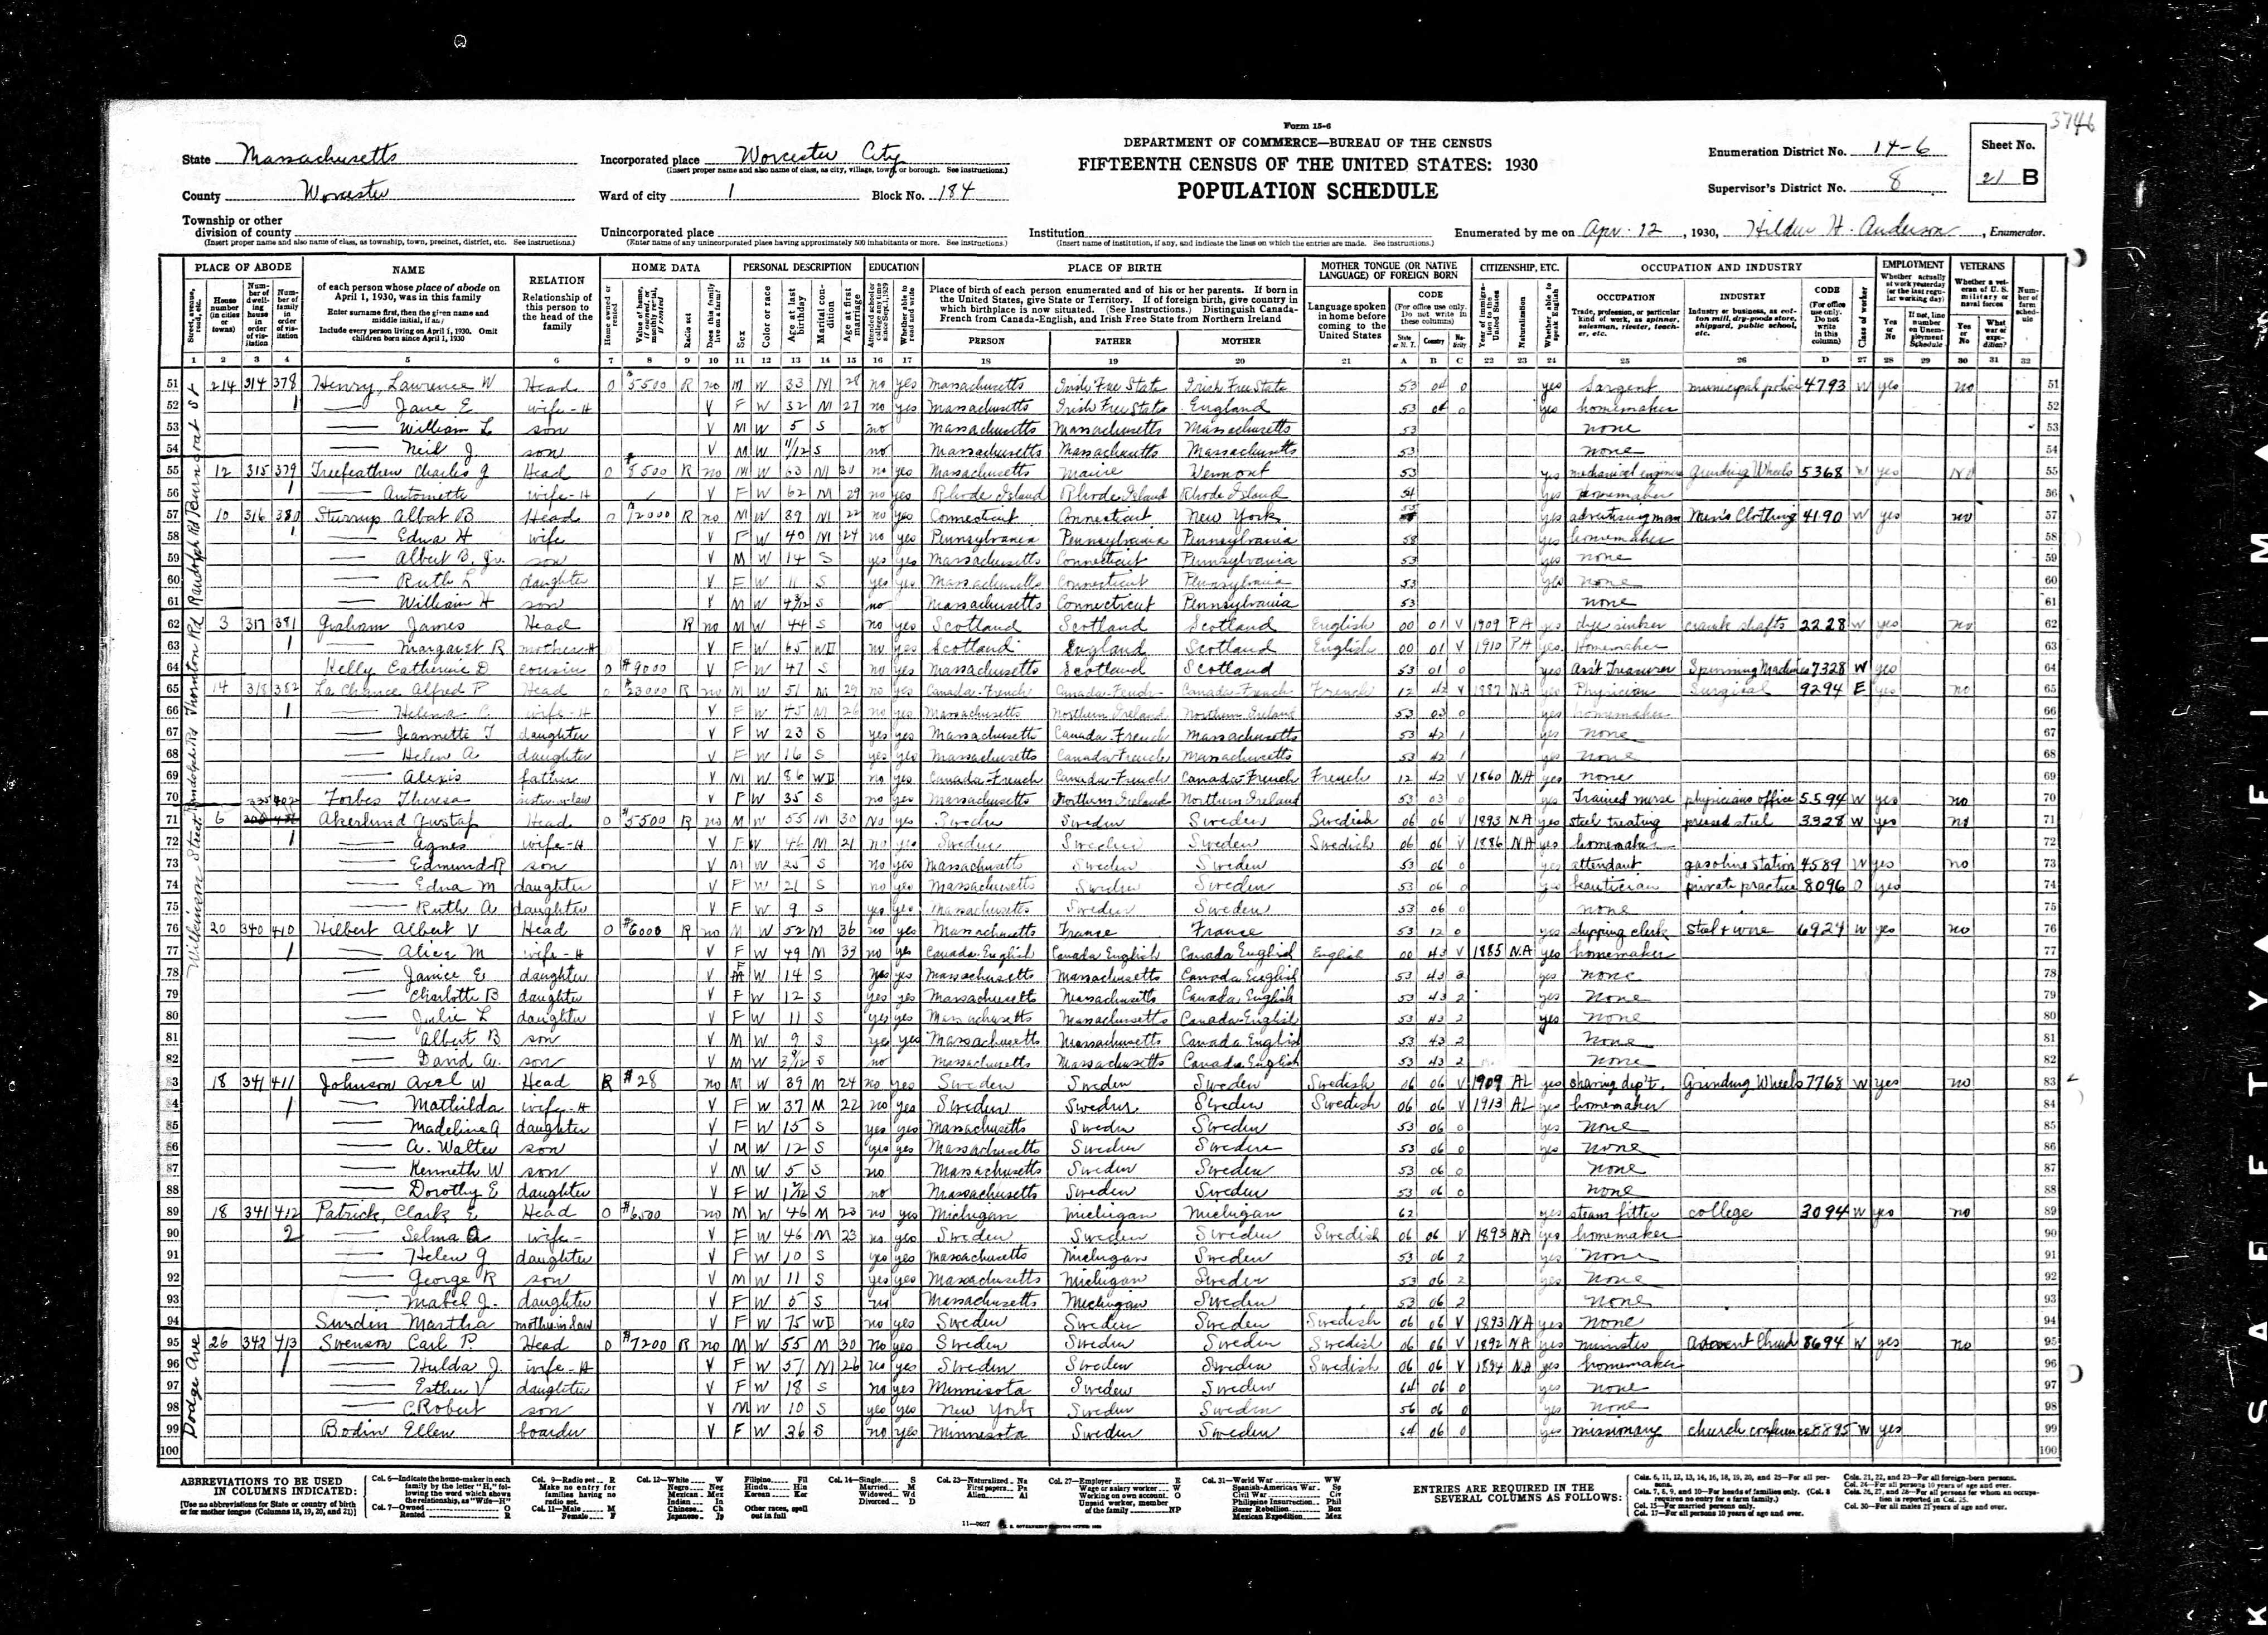 3746
Form 15-6
DEPARTMENT OF COMMERCE—BUREAU OF THE CENSUS
FIFTEENTH CENSUS OF THE UNITED STATES: 1930
POPULATION SCHEDULE
State Massachusetts
County Worcester
Township or other division of county
(Insert proper name and also name of class, as township, town, precinct, district, etc. See instructions.)
Incorporated place Worcester City
(Insert proper name and also name of class, as city, village, town, or borough. See instructions.)
Ward of city 1 Block No. 184
Unincorporated place
(Enter name of any unincorporated place having approximately 500 inhabitants or more. See instructions.)
Institution
(Insert name of institution, if any, and indicate the lines on which the entries are made. See instructions.)
Enumeration District No. 14-6
Supervisor's District No. 8
Sheet No.
21 B
Enumerated by me on Apr. 12, 1930, H. Anderson, Enumerator.
PLACE OF ABODE NAME RELATION HOME DATA PERSONAL DESCRIPTION EDUCATION PLACE OF BIRTH MOTHER TONGUE (OR NATIVE LANGUAGE) OF FOREIGN BORN CITIZENSHIP, ETC. OCCUPATION AND INDUSTRY EMPLOYMENT VETERANS
of each person whose place of abode on April 1, 1930, was in this family
Enter surname first, then the given name and middle initial, if any
Include every person living on April 1, 1930. Omit children born since April 1, 1930
Relationship of this person to the head of the family
Place of birth of each person enumerated and of his or her parents. If born in the United States, give State or Territory. If of foreign birth, give country in which birthplace is now situated. (See Instructions.) Distinguish Canada-French from Canada-English, and Irish Free State from Northern Ireland
PERSON FATHER MOTHER
Language spoken in home before coming to the United States
1 2 3 4 5 6 7 8 9 10 11 12 13 14 15 16 17 18 19 20 21 A B C 22 23 24 25 26 D 27 28 29 30 31 32
51 214 314 378 Henry, Lawrence W Head O $5500 R no M W 33 M 28 no yes Massachusetts Irish Free State Irish Free State 53 04 0 yes Sargent municipal police 4793 W yes no 51
52 1 — Jane E wife-H V F W 32 M 27 no yes Massachusetts Irish Free State England 53 04 0 yes homemaker 52
53 — William L son V M W 5 S no Massachusetts Massachusetts Massachusetts 53 none 53
54 — Neil J. son V M W 11/12 S no Massachusetts Massachusetts Massachusetts 53 none 54
55 12 315 379 Treefeathen Charles J Head O $8500 R no M W 63 M 30 no yes Massachusetts Maine Vermont 53 yes mechanical engineer Grinding Wheels 5368 W yes no 55
56 1 — Antoinette wife-H V F W 62 M 29 no yes Rhode Island Rhode Island Rhode Island 54 yes homemaker 56
57 10 316 380 Sturrup Albat B Head O $12000 R no M W 39 M 22 no yes Connecticut Connecticut New York yes advertising man Men's Clothing 4190 W yes no 57
58 1 — Edna H wife V F W 40 M 24 no yes Pennsylvania Pennsylvania Pennsylvania 58 yes homemaker 58
59 — Albert B, Jr. son V M W 14 S yes yes Massachusetts Connecticut Pennsylvania 53 yes none 59
60 — Ruth L daughter V F W 11 S yes yes Massachusetts Connecticut Pennsylvania 53 yes none 60
61 — William H son V M W S no Massachusetts Connecticut Pennsylvania 53 none 61
62 3 317 381 Graham James Head R no M W 44 S no yes Scotland Scotland Scotland English 00 01 V 1909 PA yes die sinker crank shafts 2228 W yes no 62
63 1 — Margaret R mother-H V F W 65 WD no yes Scotland England Scotland English 00 01 V 1910 PA yes Homemaker 63
64 Kelly Catherine D cousin O $9000 V F W 47 S no yes Massachusetts Scotland Scotland 53 01 0 yes Ass't Treasurer Spinning Machines 7328 W yes 64
65 14 318 382 La Chance Alfred P Head O $23000 R no M W 51 M 29 no yes Canada-French Canada-French Canada-French French 12 42 V 1887 NA yes Physician Surgical 9294 E yes no 65
66 1 — Helena C. wife-H V F W 45 M 26 no yes Massachusetts Northern Ireland Northern Ireland 53 03 0 yes homemaker 66
67 — Jeannette T daughter V F W 23 S yes yes Massachusetts Canada-French Massachusetts 53 42 1 yes none 67
68 — Helen A daughter V F W 16 S yes yes Massachusetts Canada-French Massachusetts 53 42 1 yes none 68
69 — Alexis father V M W 86 WD no yes Canada-French Canada-French Canada-French French 12 42 V 1860 NA yes none 69
70 335 402 Forbes Theresa sister-in-law V F W 35 S no yes Massachusetts Northern Ireland Northern Ireland 53 03 0 yes Trained nurse physicians office 5594 W yes no 70
71 6 Akerlund Gustaf Head O $5500 R no M W 55 M 30 No yes Sweden Sweden Sweden Swedish 06 06 V 1893 NA yes steel treating pressed steel 3928 W yes no 71
72 1 — Agnes wife-H V F W 46 M 21 no yes Sweden Sweden Sweden Swedish 06 06 V 1886 NA yes homemaker 72
73 — Edmund R son V M W 25 S no yes Massachusetts Sweden Sweden 53 06 0 yes attendant gasoline station 4589 W yes no 73
74 — Edna M daughter V F W 21 S no yes Massachusetts Sweden Sweden 53 06 0 yes beautician private practice 8096 O yes 74
75 — Ruth A daughter V F W 9 S yes yes Massachusetts Sweden Sweden 53 06 0 none 75
76 20 340 410 Hilbert Albert V Head O $6000 R no M W 52 M 36 no yes Massachusetts France France 53 12 0 yes shipping clerk Steel & wire 6924 W yes no 76
77 1 — Alice M wife-H V F W 49 M 33 no yes Canada English Canada English Canada English English 00 43 V 1885 NA yes homemaker 77
78 — Janice E daughter V F W 14 S yes yes Massachusetts Massachusetts Canada English 53 43 2 yes none 78
79 — Charlotte B daughter V F W 12 S yes yes Massachusetts Massachusetts Canada English 53 43 2 yes None 79
80 — Julie L daughter V F W 11 S yes yes Massachusetts Massachusetts Canada-English 53 43 2 yes none 80
81 — Albert B son V M W 9 S yes yes Massachusetts Massachusetts Canada English 53 43 2 None 81
82 — David W. son V M W S no Massachusetts Massachusetts Canada English 53 43 2 none 82
83 18 341 411 Johnson Axel W Head R $28 no M W 39 M 24 no yes Sweden Sweden Sweden Swedish 06 06 V 1909 AL yes sharing dep't. Grinding Wheels 7768 W yes no 83
84 1 — Mathilda wife-H V F W 37 M 22 no yes Sweden Sweden Sweden Swedish 06 06 V 1913 AL yes homemaker 84
85 — Madeline A daughter V F W 15 S yes yes Massachusetts Sweden Sweden 53 06 0 yes None 85
86 — A. Walter son V M W 12 S yes yes Massachusetts Sweden Sweden 53 06 0 yes none 86
87 — Kenneth W son V M W 5 S no Massachusetts Sweden Sweden 53 06 0 none 87
88 — Dorothy E daughter V F W S no Massachusetts Sweden Sweden 53 06 0 none 88
89 18 341 412 Patrick, Clark E Head O $6500 no M W 46 M 23 no yes Michigan Michigan Michigan 62 yes steam fitter college 3094 W yes no 89
90 2 — Selma A wife- V F W 46 M 23 no yes Sweden Sweden Sweden Swedish 06 06 V 1893 NA yes homemaker 90
91 — Helen J daughter V F W 10 S yes yes Massachusetts Michigan Sweden 53 06 2 yes None 91
92 — George R son V M W 11 S yes yes Massachusetts Michigan Sweden 53 06 2 yes None 92
93 — Mabel J. daughter V F W 5 S no Massachusetts Michigan Sweden 53 06 2 none 93
94 Sundin Martha mother in law V F W 75 WD no yes Sweden Sweden Sweden Swedish 06 06 V 1893 NA yes none 94
95 26 342 413 Swenson Carl P. Head O $7200 R no M W 55 M 30 no yes Sweden Sweden Sweden Swedish 06 06 V 1892 NA yes minister Advent Church 8694 W yes no 95
96 1 — Hulda J. wife-H V F W 57 M 26 no yes Sweden Sweden Sweden Swedish 06 06 V 1894 NA yes homemaker 96
97 — Esther V daughter V F W 18 S no yes Minnesota Sweden Sweden 64 06 0 yes none 97
98 — C. Robert son V M W 10 S yes yes New York Sweden Sweden 56 06 0 yes none 98
99 Bodin Ellen boarder V F W 36 S no yes Minnesota Sweden Sweden 64 06 0 yes missionary church conference 8895 W yes 99
100 100
Randolph Rd
Thornton Rd
Wilkinson Street
Dodge Ave
ABBREVIATIONS TO BE USED IN COLUMNS INDICATED:
[Use no abbreviations for State or country of birth or for mother tongue (Columns 18, 19, 20, and 21)]
Col. 6—Indicate the home-maker in each family by the letter "H," following the word which shows the relationship, as "Wife—H"
Col. 7—Owned O Rented R
Col. 9—Radio set R Make no entry for families having no radio set.
Col. 11—Male M Female F
Col. 12—White W Negro Neg Mexican Mex Indian In Chinese Ch Japanese Jp Filipino Fil Hindu Hin Korean Kor Other races, spell out in full
Col. 14—Single S Married M Widowed Wd Divorced D
Col. 23—Naturalized Na First papers Pa Alien Al
Col. 27—Employer E Wage or salary worker W Working on own account O Unpaid worker, member of the family NP
Col. 31—World War WW Spanish-American War Sp Civil War Civ Philippine Insurrection Phil Boxer Rebellion Box Mexican Expedition Mex
ENTRIES ARE REQUIRED IN THE SEVERAL COLUMNS AS FOLLOWS:
Cols. 6, 11, 12, 13, 14, 16, 18, 19, 20, and 25—For all persons.
Cols. 7, 8, 9, and 10—For heads of families only. (Col. 8 requires no entry for a farm family.)
Col. 15—For married persons only.
Col. 17—For all persons 10 years of age and over.
Cols. 21, 22, and 23—For all foreign-born persons.
Col. 24—For all persons 10 years of age and over.
Cols. 26, 27, and 28—For all persons for whom an occupation is reported in Col. 25.
Col. 30—For all males 21 years of age and over.
11—9027